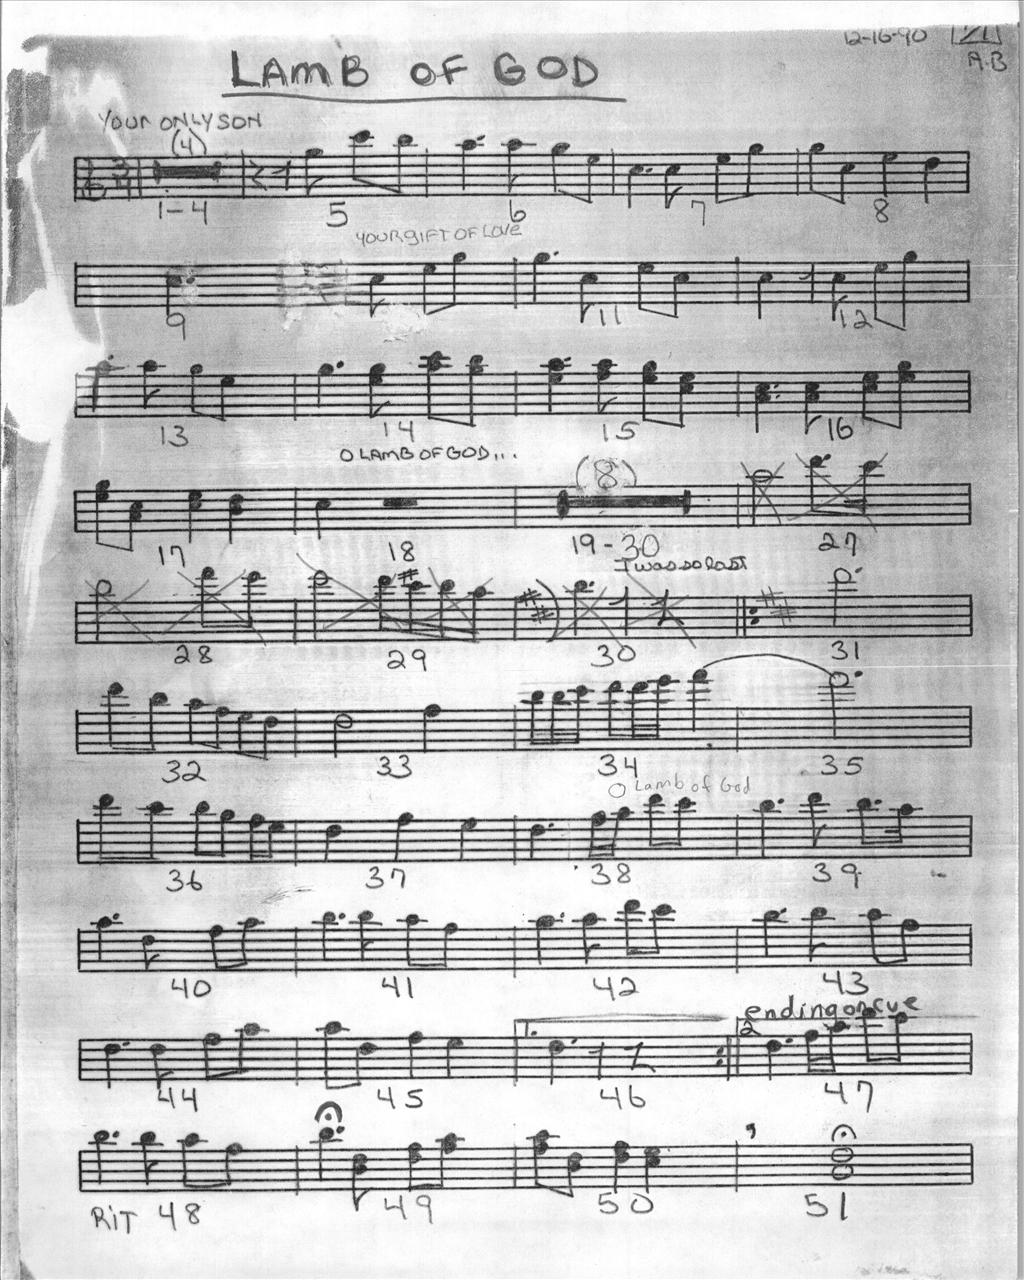 12-16-90
A.B
LAMB OF GOD
YOUR ONLY SON
(4)
1-4 5 6 7 8
YOUR GIFT OF LOVE
9 11 12
13 14 15 16
O LAMB OF GOD...
(8)
17 18 19-30 27
I was so lost
28 29 30 31
32 33 34 35
O Lamb of God
36 37 38 39
40 41 42 43
ending on cue
1. 2
44 45 46 47
RIT 48 49 50 51